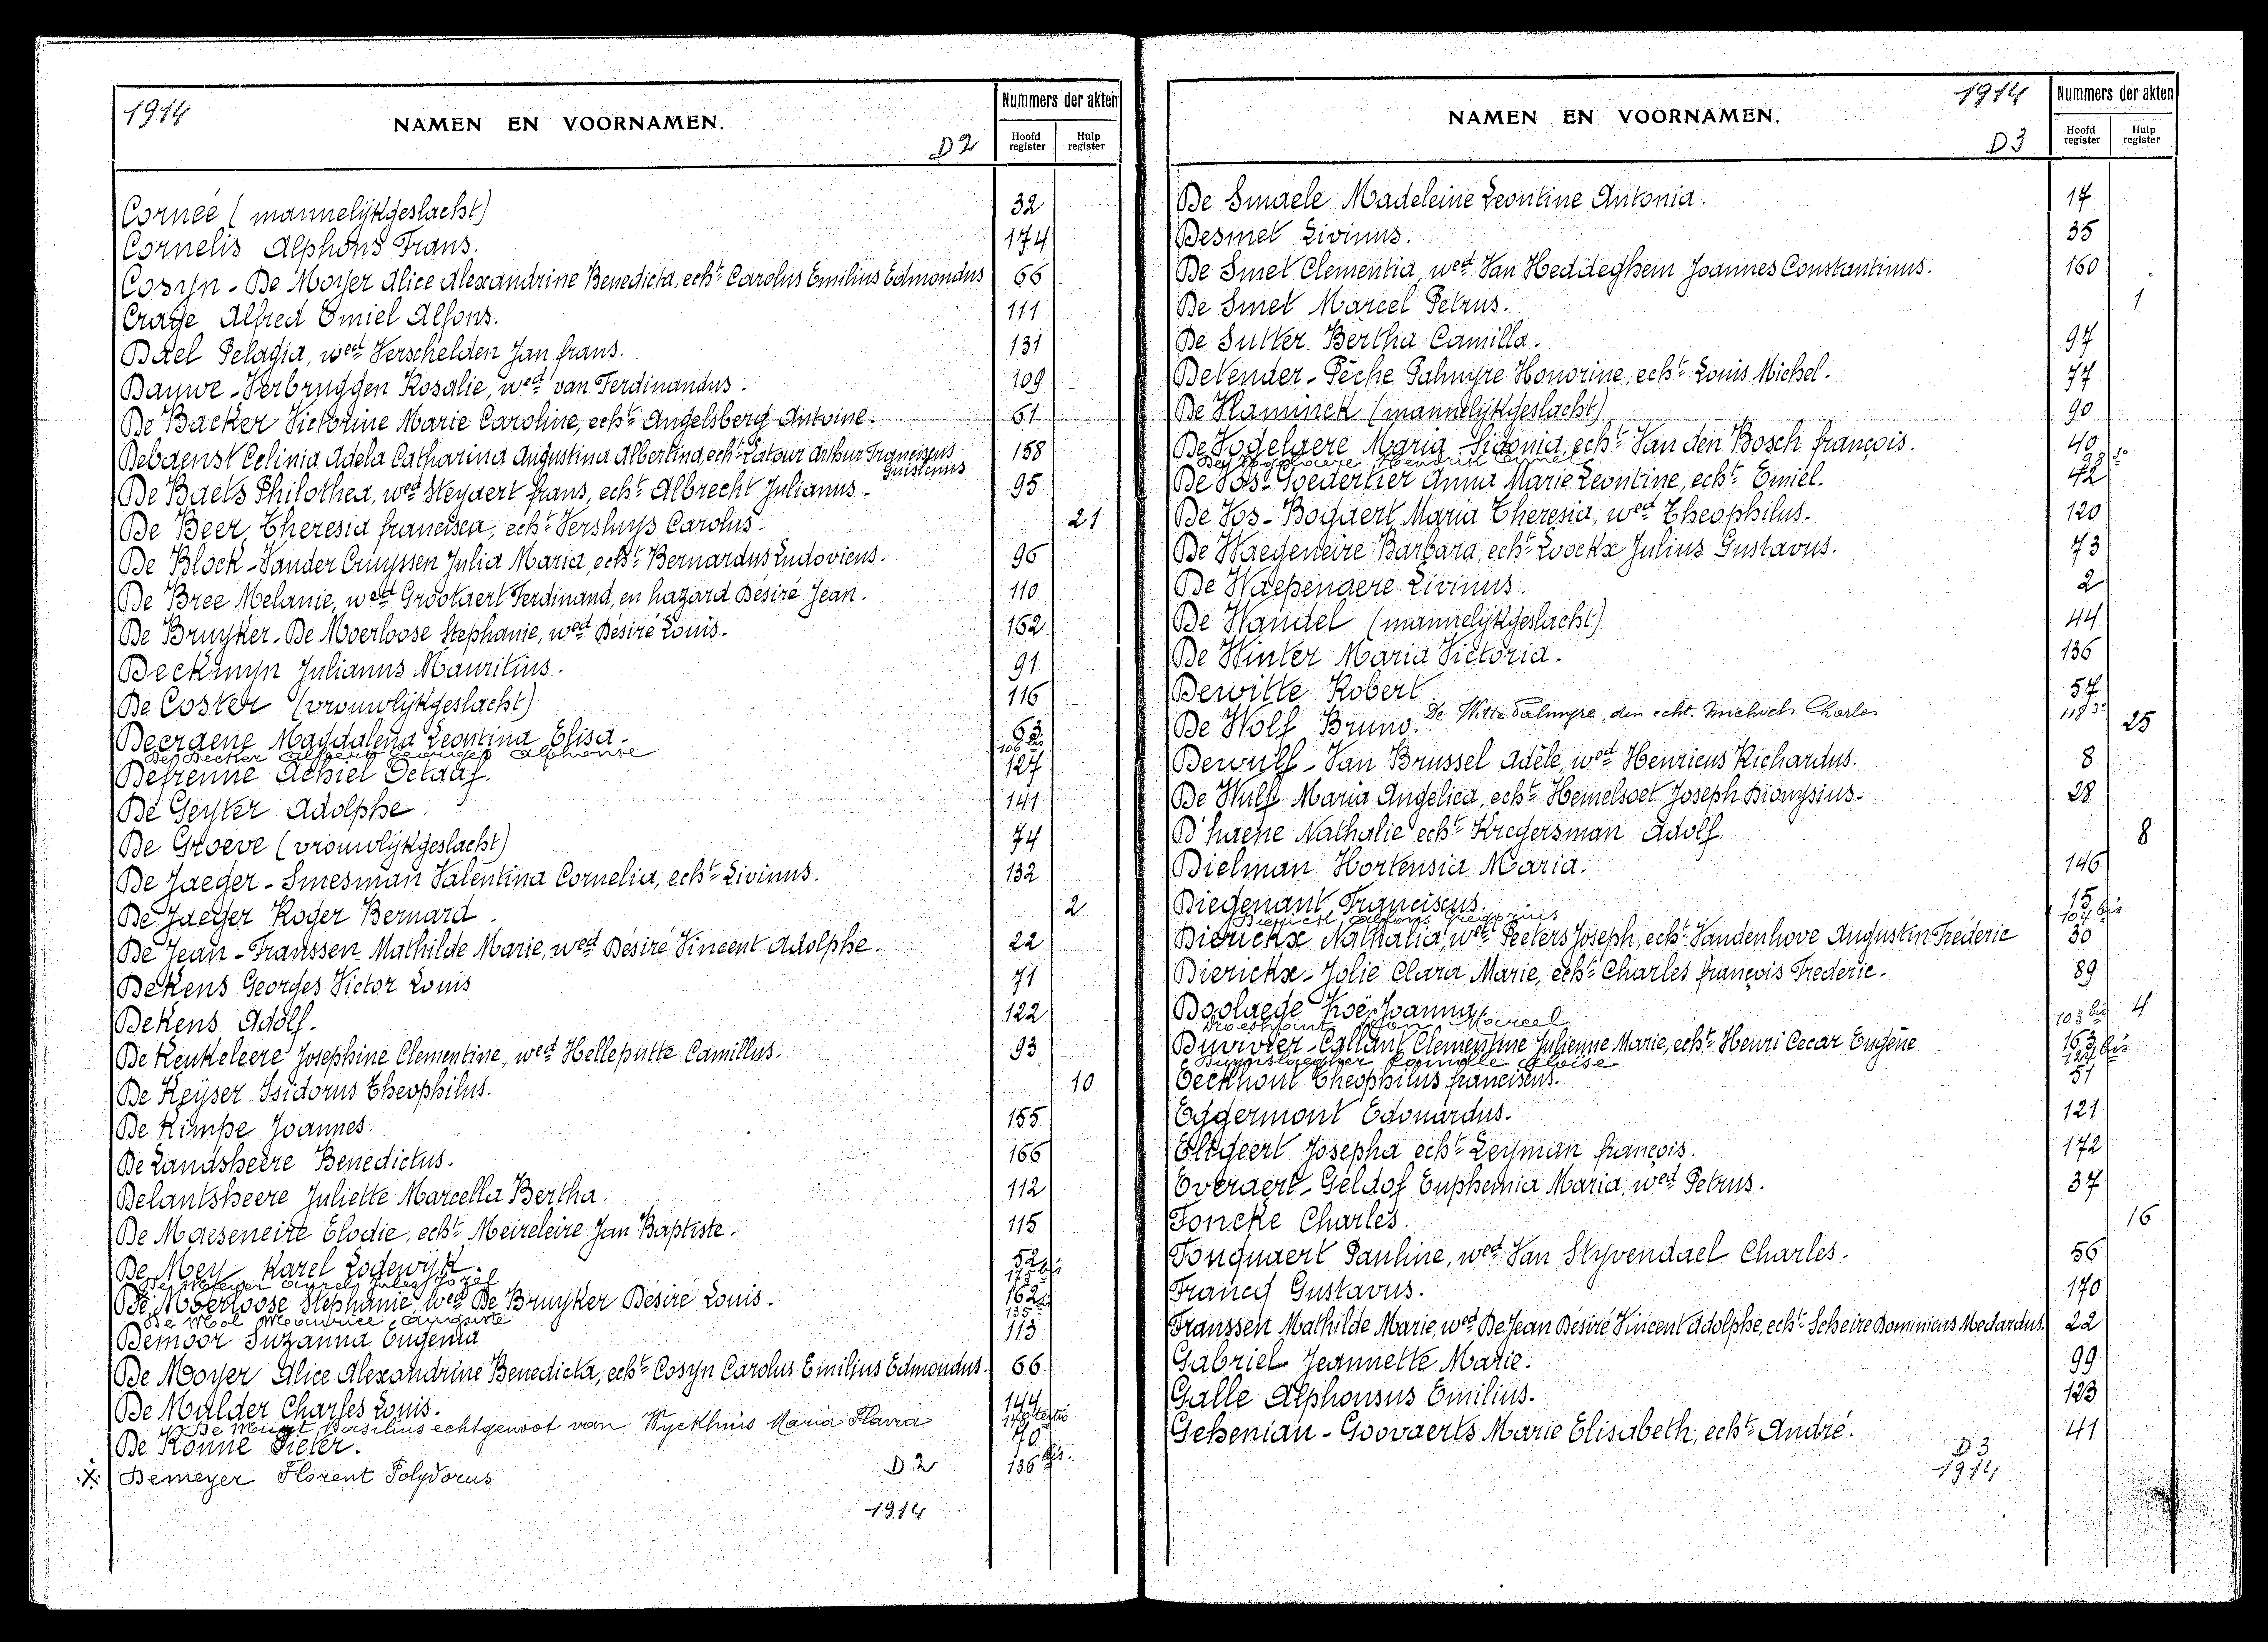 1914
NAMEN EN VOORNAMEN.
D2
Nummers der akten
Hoofd register
Hulp register
Cornéé (mannelijkgeslacht) 32
Cornelis Alphons Frans. 174
Cosyn - De Moyer Alice Alexandrine Benedicta, echt Carolus Emilius Edmondus 66
Crage Alfred Emiel Alfons. 111
Dael Pelagia, wed Verschelden Jan frans. 131
Dauwe - Verbruggen Rosalie, wed van Ferdinandus. 109
De Backer Victorine Marie Caroline, echt Angelsberg Antoine. 61
Debaenst Celinia Adela Catharina Augustina Albertina, echt Latour Arthur Franciscus 158
Guislenus
De Baets Philothea, wed Steyaert frans, echt Albrecht Julianus. 95
De Beer Theresia francisca, echt Versluys Carolus. 21
De Block - Vander Cruyssen Julia Maria, echt Bernardus Ludovicus. 96
De Bree Melanie, wed Grootaert Ferdinand, en hazard Désiré Jean. 110
De Bruyker - De Moerloose Stephanie, wed Désiré Louis. 162
Deckmyn Julianus Mauritius. 91
De Coster (vrouwlijkgeslacht) 116
Decraene Magdalena Leontina Elisa. 63
De Decker Albert Georges Alphonse 106 bis
Defrenne Achiel Octaaf. 127
De Geyter Adolphe. 141
De Groeve (vrouwlijkgeslacht) 74
De Jaeger - Smesman Valentina Cornelia, echt Livinus. 132
De Jaeger Roger Bernard. 2
De Jean - Franssen Mathilde Marie, wed Désiré Vincent Adolphe. 22
Dekens Georges Victor Louis 71
Dekens Adolf. 122
De Keukeleere Josephine Clementine, wed Helleputte Camillus. 93
De Keyser Isidorus Theophilus. 10
De Kimpe Joannes. 155
De Landsheere Benedictus. 166
Delantsheere Juliette Marcella Bertha. 112
De Maeseneire Elodie, echt Meireleire Jan Baptiste. 115
De Mey Karel Lodewijk. 52
De Meyer Jules Jozef 175 bis
De Moerloose Stephanie, wed De Bruyker Désiré Louis. 162
De Mol Maurice Auguste 135
Demoor Suzanna Eugenia 113
De Moyer Alice Alexandrine Benedicta, echt Cosyn Carolus Emilius Edmondus. 66
De Mulder Charles Louis. 144
De Munt Basilius echtgenoot van Wyckhuis Maria Flavia
De Konne Pieter. 70
Demeyer Florent Polydorus 136 bis.
D2
1914
1914
NAMEN EN VOORNAMEN.
D3
Nummers der akten
Hoofd register
Hulp register
De Smaele Madeleine Leontine Antonia. 17
Desmet Livinus. 35
De Smet Clementia, wed Van Heddeghem Joannes Constantinus. 160
De Smet Marcel Petrus. 1
De Sutter Bertha Camilla. 97
Detender - Pèche Palmyre Honorine, echt Louis Michel. 77
De Vlaminck (mannelijkgeslacht) 90
De Vogelaere Maria Sidonia, echt Van den Bosch françois. 40
De Vogelaere Hendrik 98
De Vos - Goedertier Anna Marie Leontine, echt Emiel. 42
De Vos - Bogaert Maria Theresia, wed Theophilus. 120
De Waegeneire Barbara, echt Loockx Julius Gustavus. 73
De Waepenaere Livinus. 2
De Wandel (mannelijkgeslacht) 44
De Winter Maria Victoria. 136
Dewitte Robert 57
De Witte Palmyre, den echt. Michiels Charles 118
De Wolf Bruno. 25
Dewulf - Van Brussel Adèle, wed Henricus Richardus. 8
De Wulf Maria Angelica, echt Hemelsoet Joseph Dionysius. 28
D'haene Nathalie echt Kregersman Adolf. 8
Dielman Hortensia Maria. 146
Diegenant Franciscus. 15
Dierick Alfons 104 bis
Dierickx Nathalia, wed Peeters Joseph, echt Vandenhove Augustin Fréderic 30
Dierickx - Jolie Clara Marie, echt Charles françois Frederic. 89
Doolaege Zoé Joanna 4
Droeshout Marcel 103 bis
Duvivier - Callant Clementine Julienne Marie, echt Henri Cecar Eugène 163
Duynslaegher Aloïse 127 bis
Eeckhout Theophilus franciscus. 51
Eggermont Edouardus. 121
Elegeert Josepha echt Leyman françois. 172
Everaert - Geldof Euphemia Maria, wed Petrus. 37
Foncke Charles. 16
Fonquaert Pauline, wed Van Styvendael Charles. 56
Francq Gustavus. 170
Franssen Mathilde Marie, wed De Jean Désiré Vincent Adolphe, echt Scheire Dominicus Medardus. 22
Gabriel Jeannette Marie. 99
Galle Alphonsus Emilius. 123
Gehenian - Goovaerts Marie Elisabeth, echt André. 41
D3
1914